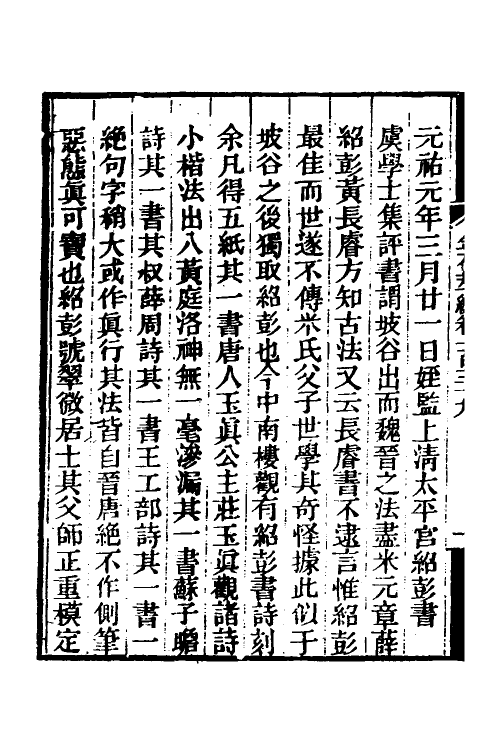 元祐元年三月廿一日姪監上淸太平宮紹彭書
虞學士集評書謂坡谷出而魏晉之法盡米元章薛
紹彭黃長睿方知古法又云長睿書不逮言惟紹彭
最佳而世遂不傳米氏父子世學其奇怪據此似于
坡谷之後獨取紹彭也今中南樓觀有紹彭書詩刻
余凡得五紙其一書唐人玉眞公主莊玉眞觀諸詩
小楷法出入黃庭洛神無一毫滲漏其一書蘇子瞻
詩其一書其叔薛周詩其一書王工部詩其一書一
絕句字稍大或作眞行其法皆自晉唐絕不作側筆
惡態眞可寶也紹彭號翠微居士其父師正重模定